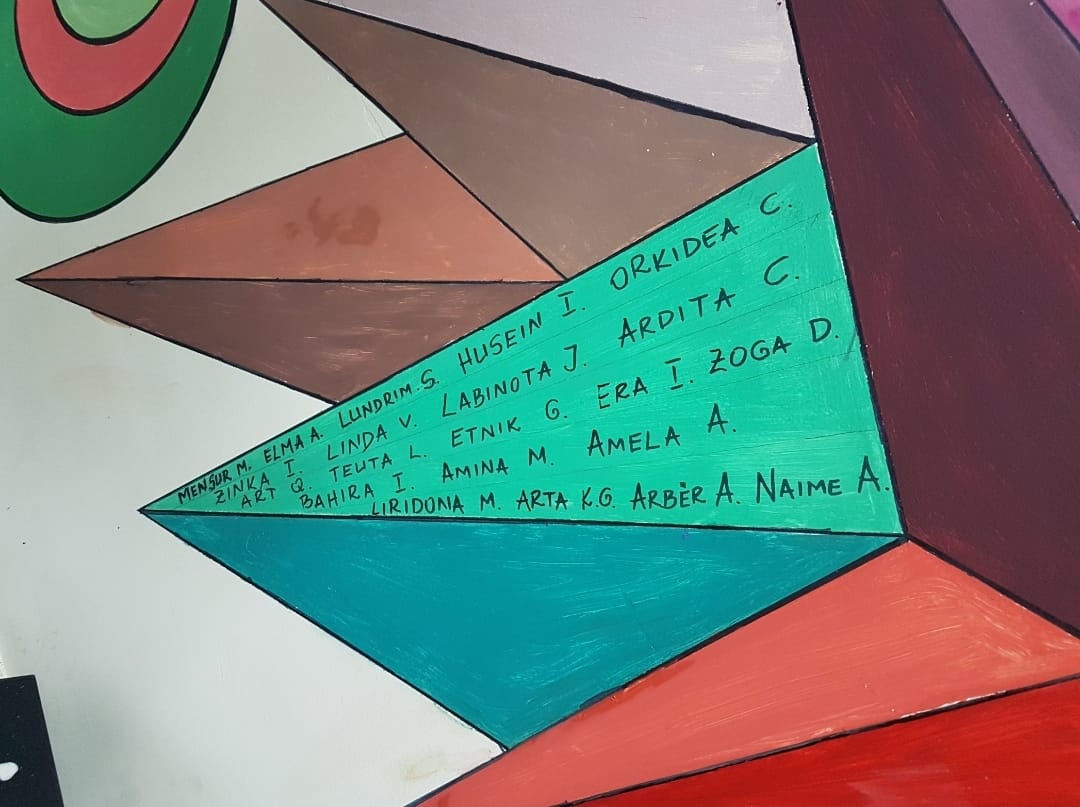 MENSUR M. ELMA A. LUNDRIM.S. HUSEIN I. ORKIDEA C.
ZINKA I. LINDA V. LABINOTA J. ARDITA C.
ART Q. TEUTA L. ETNIK G. ERA I. ZOGA D.
BAHIRA I. AMINA M. AMELA A.
LIRIDONA M. ARTA K.G. ARBËR A. NAIME A.